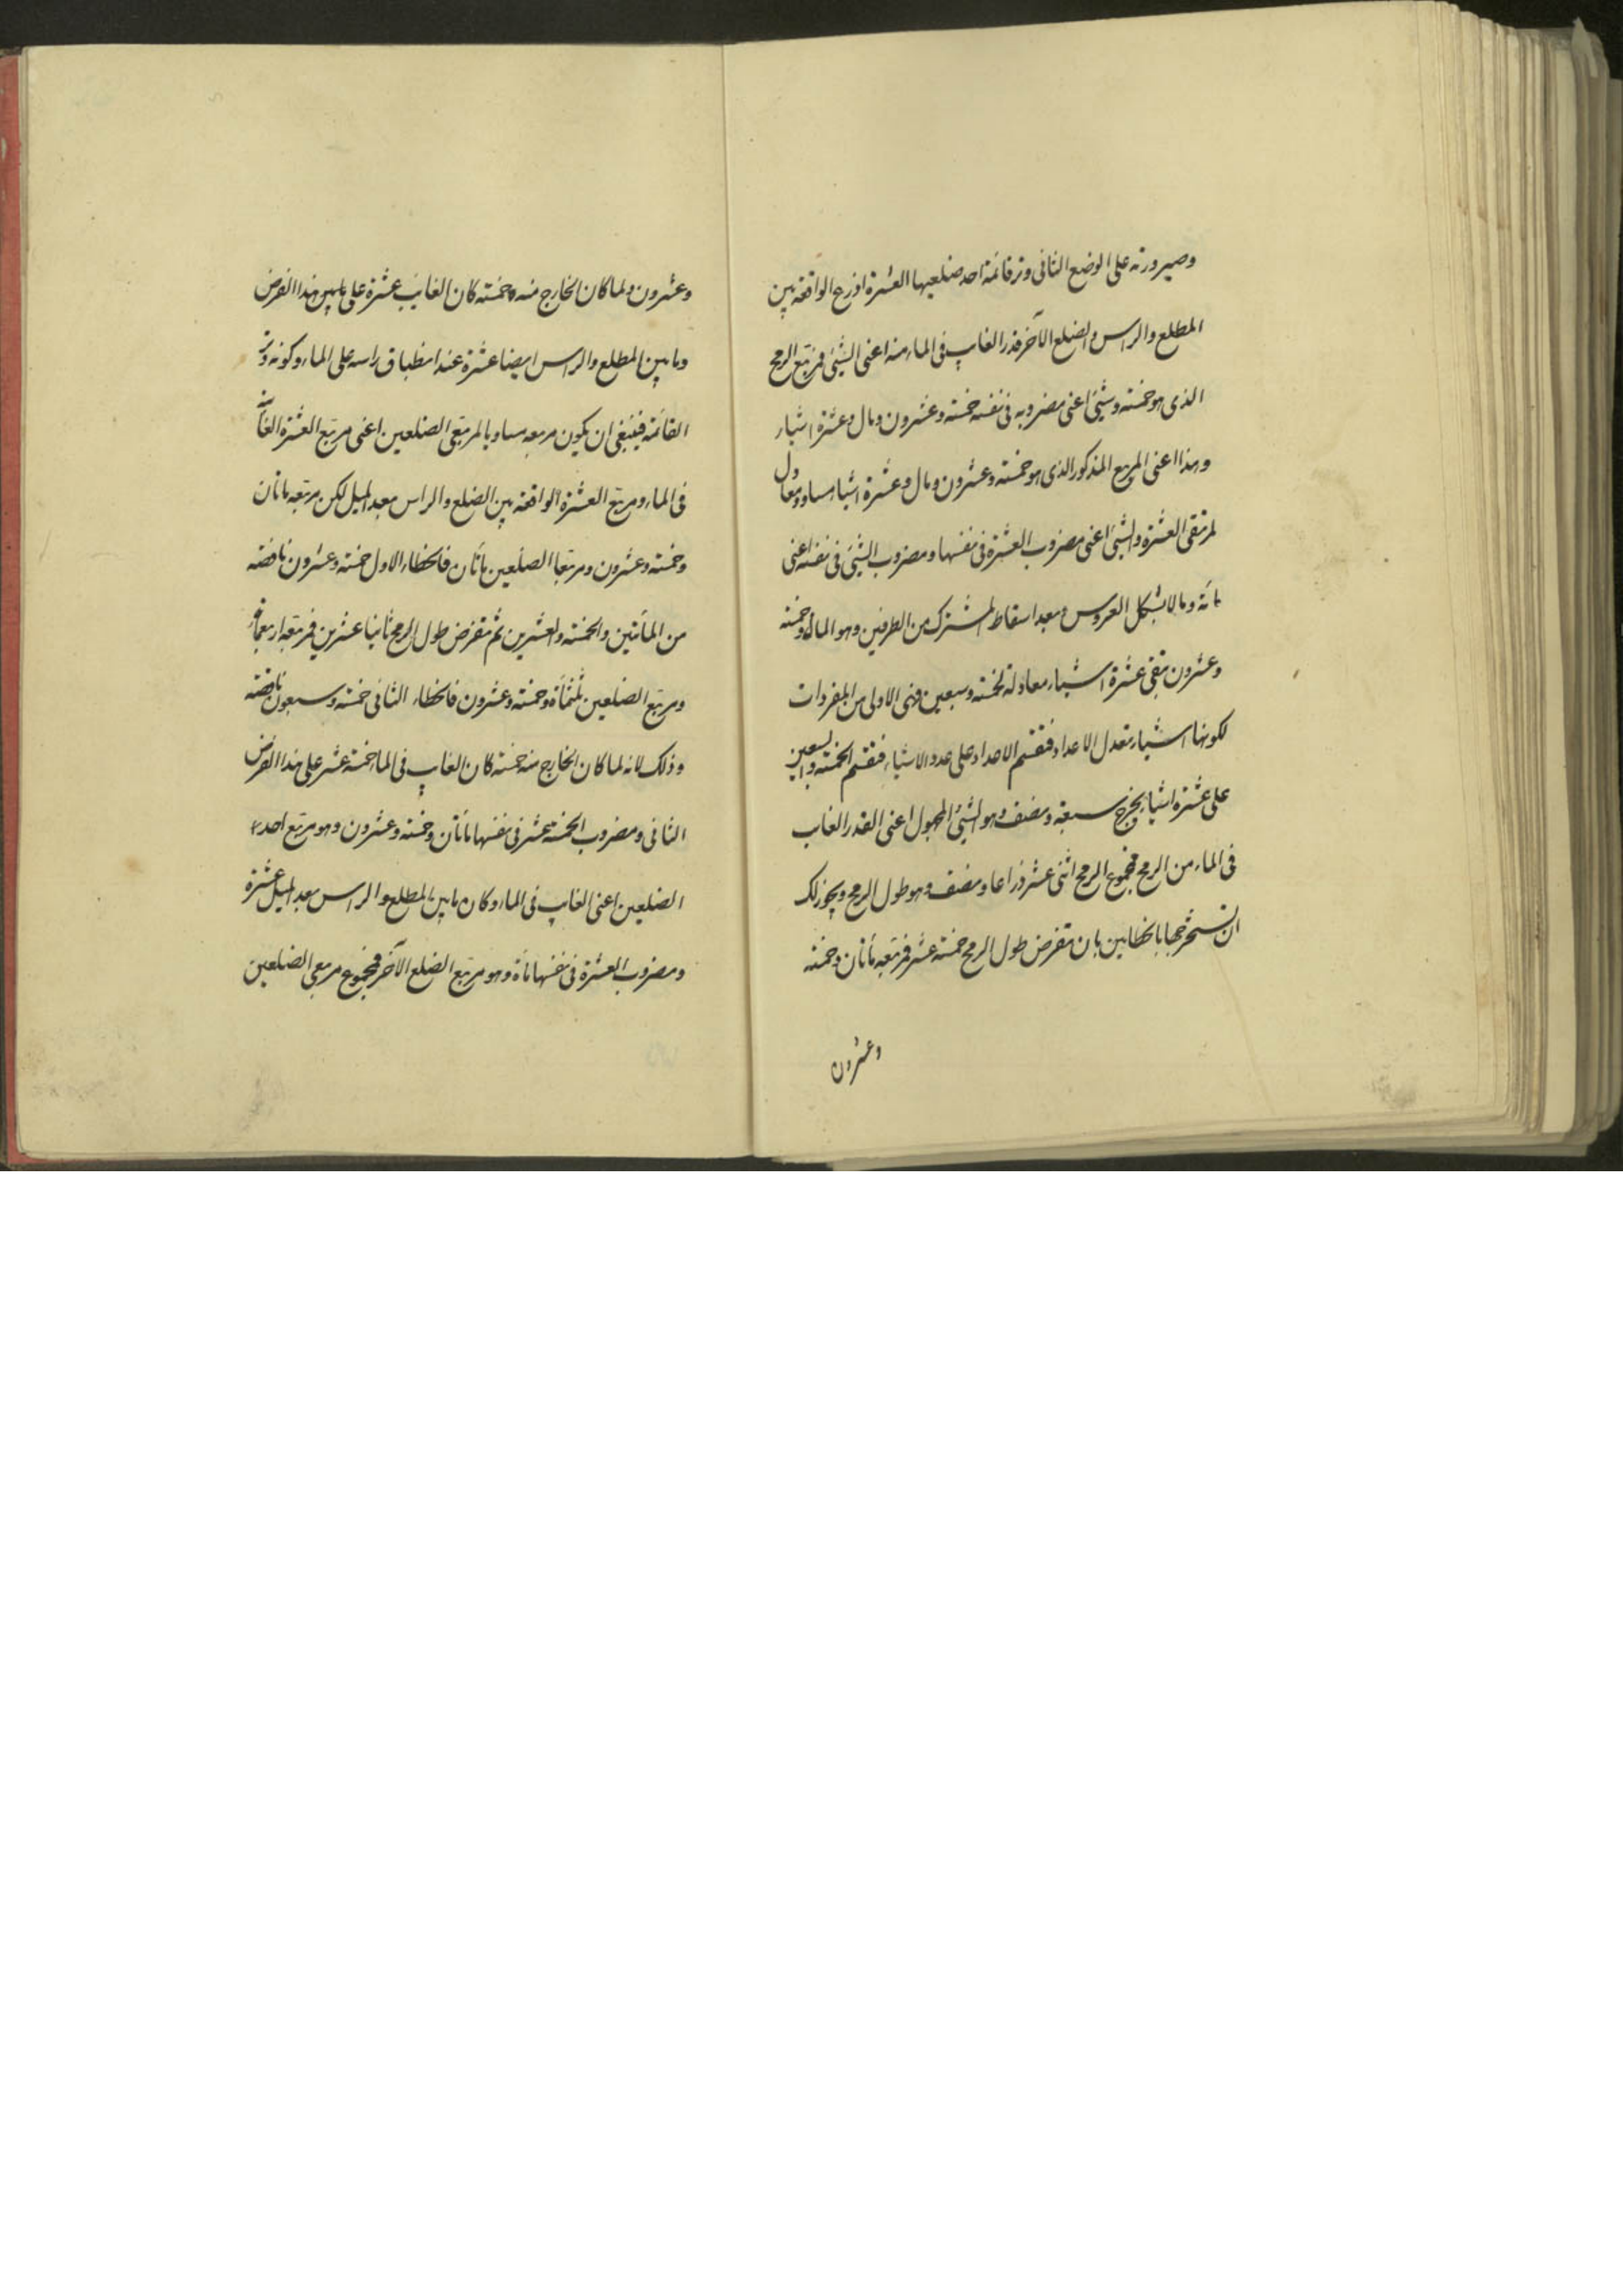 وصيرورته على الوضع الثانى وتر قائمة احد ضلعيها العشرة اذرع الواقعة بين
المطلع والراس والضلع الآخر قدر الغايب فى الماء منه اعنى الشيئ فمربع الرمح
الذى هو خمسة وشيئ اعنى مضروبه فى نفسه خمسة وعشرون ومال وعشرة اشياء
وهذا اعنى المربع المذكور الذى هو خمسة وعشرون ومال وعشرة اشياء مساو ومعادل
لمربعى العشرة والشيئ اعنى مضروب العشرة فى نفسها ومضروب الشيئ فى نفسه اعنى
مائة ومالا بشكل العروس وبعد اسقاط المشترك من الطرفين وهو المال وخمسة
وعشرون تبقى عشرة اشياء معادلة لخمسة وسبعين وهى الاولى من المفردات
لكونها اشياء تعدل الاعداد فتقسم الاعداد على عدد الاشياء فتقسم الخمسة والسبعين
على عشرة اشيا يخرج سبعة ونصف وهو الشيئ المجهول اعنى القدر الغايب
فى الماء من الرمح فمجموع الرمح اثنى عشر ذراعا ونصف وهو طول الرمح ويجوز لك
ان تستخرجها بالخطايين بان تفرض طول الرمح خمسة عشر فمربعه مأتان وخمسة
وعشرون
وعشرون ولما كان الخارج منه خمسة كان الغايب عشرة على هذا الفرض
وما بين المطلع والراس ايضا عشرة عند انطباق راسه على الماء وكونه وتر
القائمة فينبغى ان يكون مربعه مساويا لمربعى الضلعين اعنى مربع العشرة الغائبة
فى الماء ومربع العشرة الواقعة بين الضلع والراس بعد الميل لكن مربعه مأتان
وخمسة وعشرون ومربعا الضلعين مأتان فالخطاء الاول خمسة وعشرون ناقصة
من المأتين والخمسة والعشرين ثم تفرض طول الرمح ثانيا عشرين فمربعه اربعمائة
ومربع الضلعين ثلثمائة وخمسة وعشرون فالخطاء الثانى خمسة وسبعون ناقصة
وذلك لانه لما كان الخارج منه خمسة كان الغايب فى الما خمسة عشر على هذا الفرض
الثانى ومضروب الخمسة عشر فى نفسها مأتان وخمسة وعشرون وهو مربع احد
الضلعين اعنى الغايب فى الماء وكان ما بين المطلع والراس بعد الميل عشرة
ومضروب العشرة فى نفسها مائة وهو مربع الضلع الآخر فمجموع مربعى الضلعين